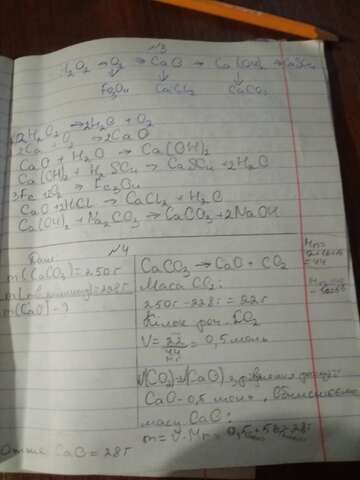 №3
H₂O₂ → O₂ → CaO → Ca(OH)₂ → CaSO₄
Fe₃O₄ CaCl₂ CaCO₃
2H₂O₂ → 2H₂O + O₂
2Ca + O₂ → 2CaO
CaO + H₂O → Ca(OH)₂
Ca(OH)₂ + H₂SO₄ → CaSO₄ + 2H₂O
3Fe + 2O₂ → Fe₃O₄
CaO + 2HCl → CaCl₂ + H₂O
Ca(OH)₂ + Na₂CO₃ → CaCO₃ + 2NaOH
№4
m(CaCO₃) = 250г
= 228г
m(CaO) - ?
CaCO₃ → CaO + CO₂
Маса CO₂:
250г - 228г = 22г
Кільк реч. CO₂
V = 22/44 = 0,5 моль
= 44
V(CO₂) = V(CaO) з рівняння реакції
CaO - 0,5 моль, Обчислюємо
масу CaO:
m = V · Mr = 0,5 · 56 = 28г
Отже CaO = 28г